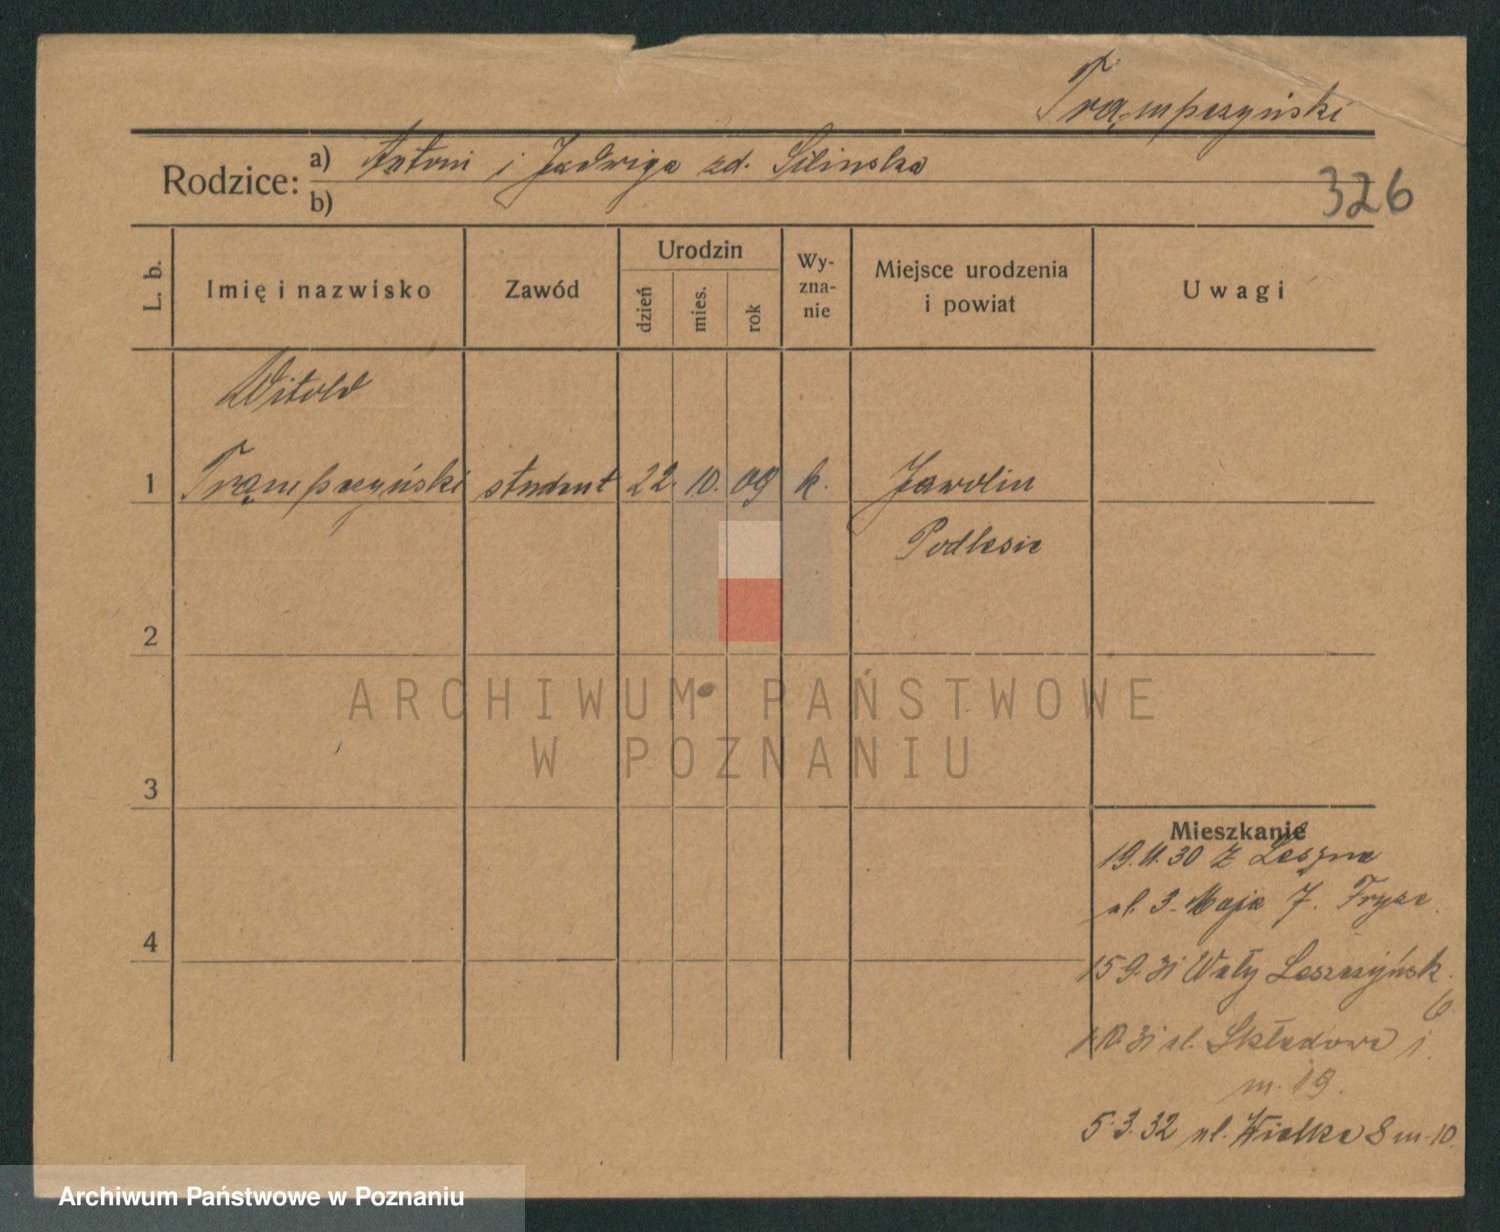 Trąmpczyński
Rodzice: a) Antoni i Jadwiga zd. Silinska
b)
326
L. b.
Imię i nazwisko
Zawód
Urodzin
dzień
mies.
rok
Wy-
zna-
nie
Miejsce urodzenia
i powiat
Uwagi
Witold
1 Trąmpczyński student 22. 10. 09 k.
Podlesie
2
3
4
ARCHIWUM PAŃSTWOWE
W POZNANIU
Mieszkanie
30 z Leszna
ul. 3. Maja 7.
15 9. 31 Wały Leszczyńsk.
6
10 31 ul. Składowa
m. 19.
5. 3. 32 ul. Wielka 8 m. 10.
Archiwum Państwowe w Poznaniu